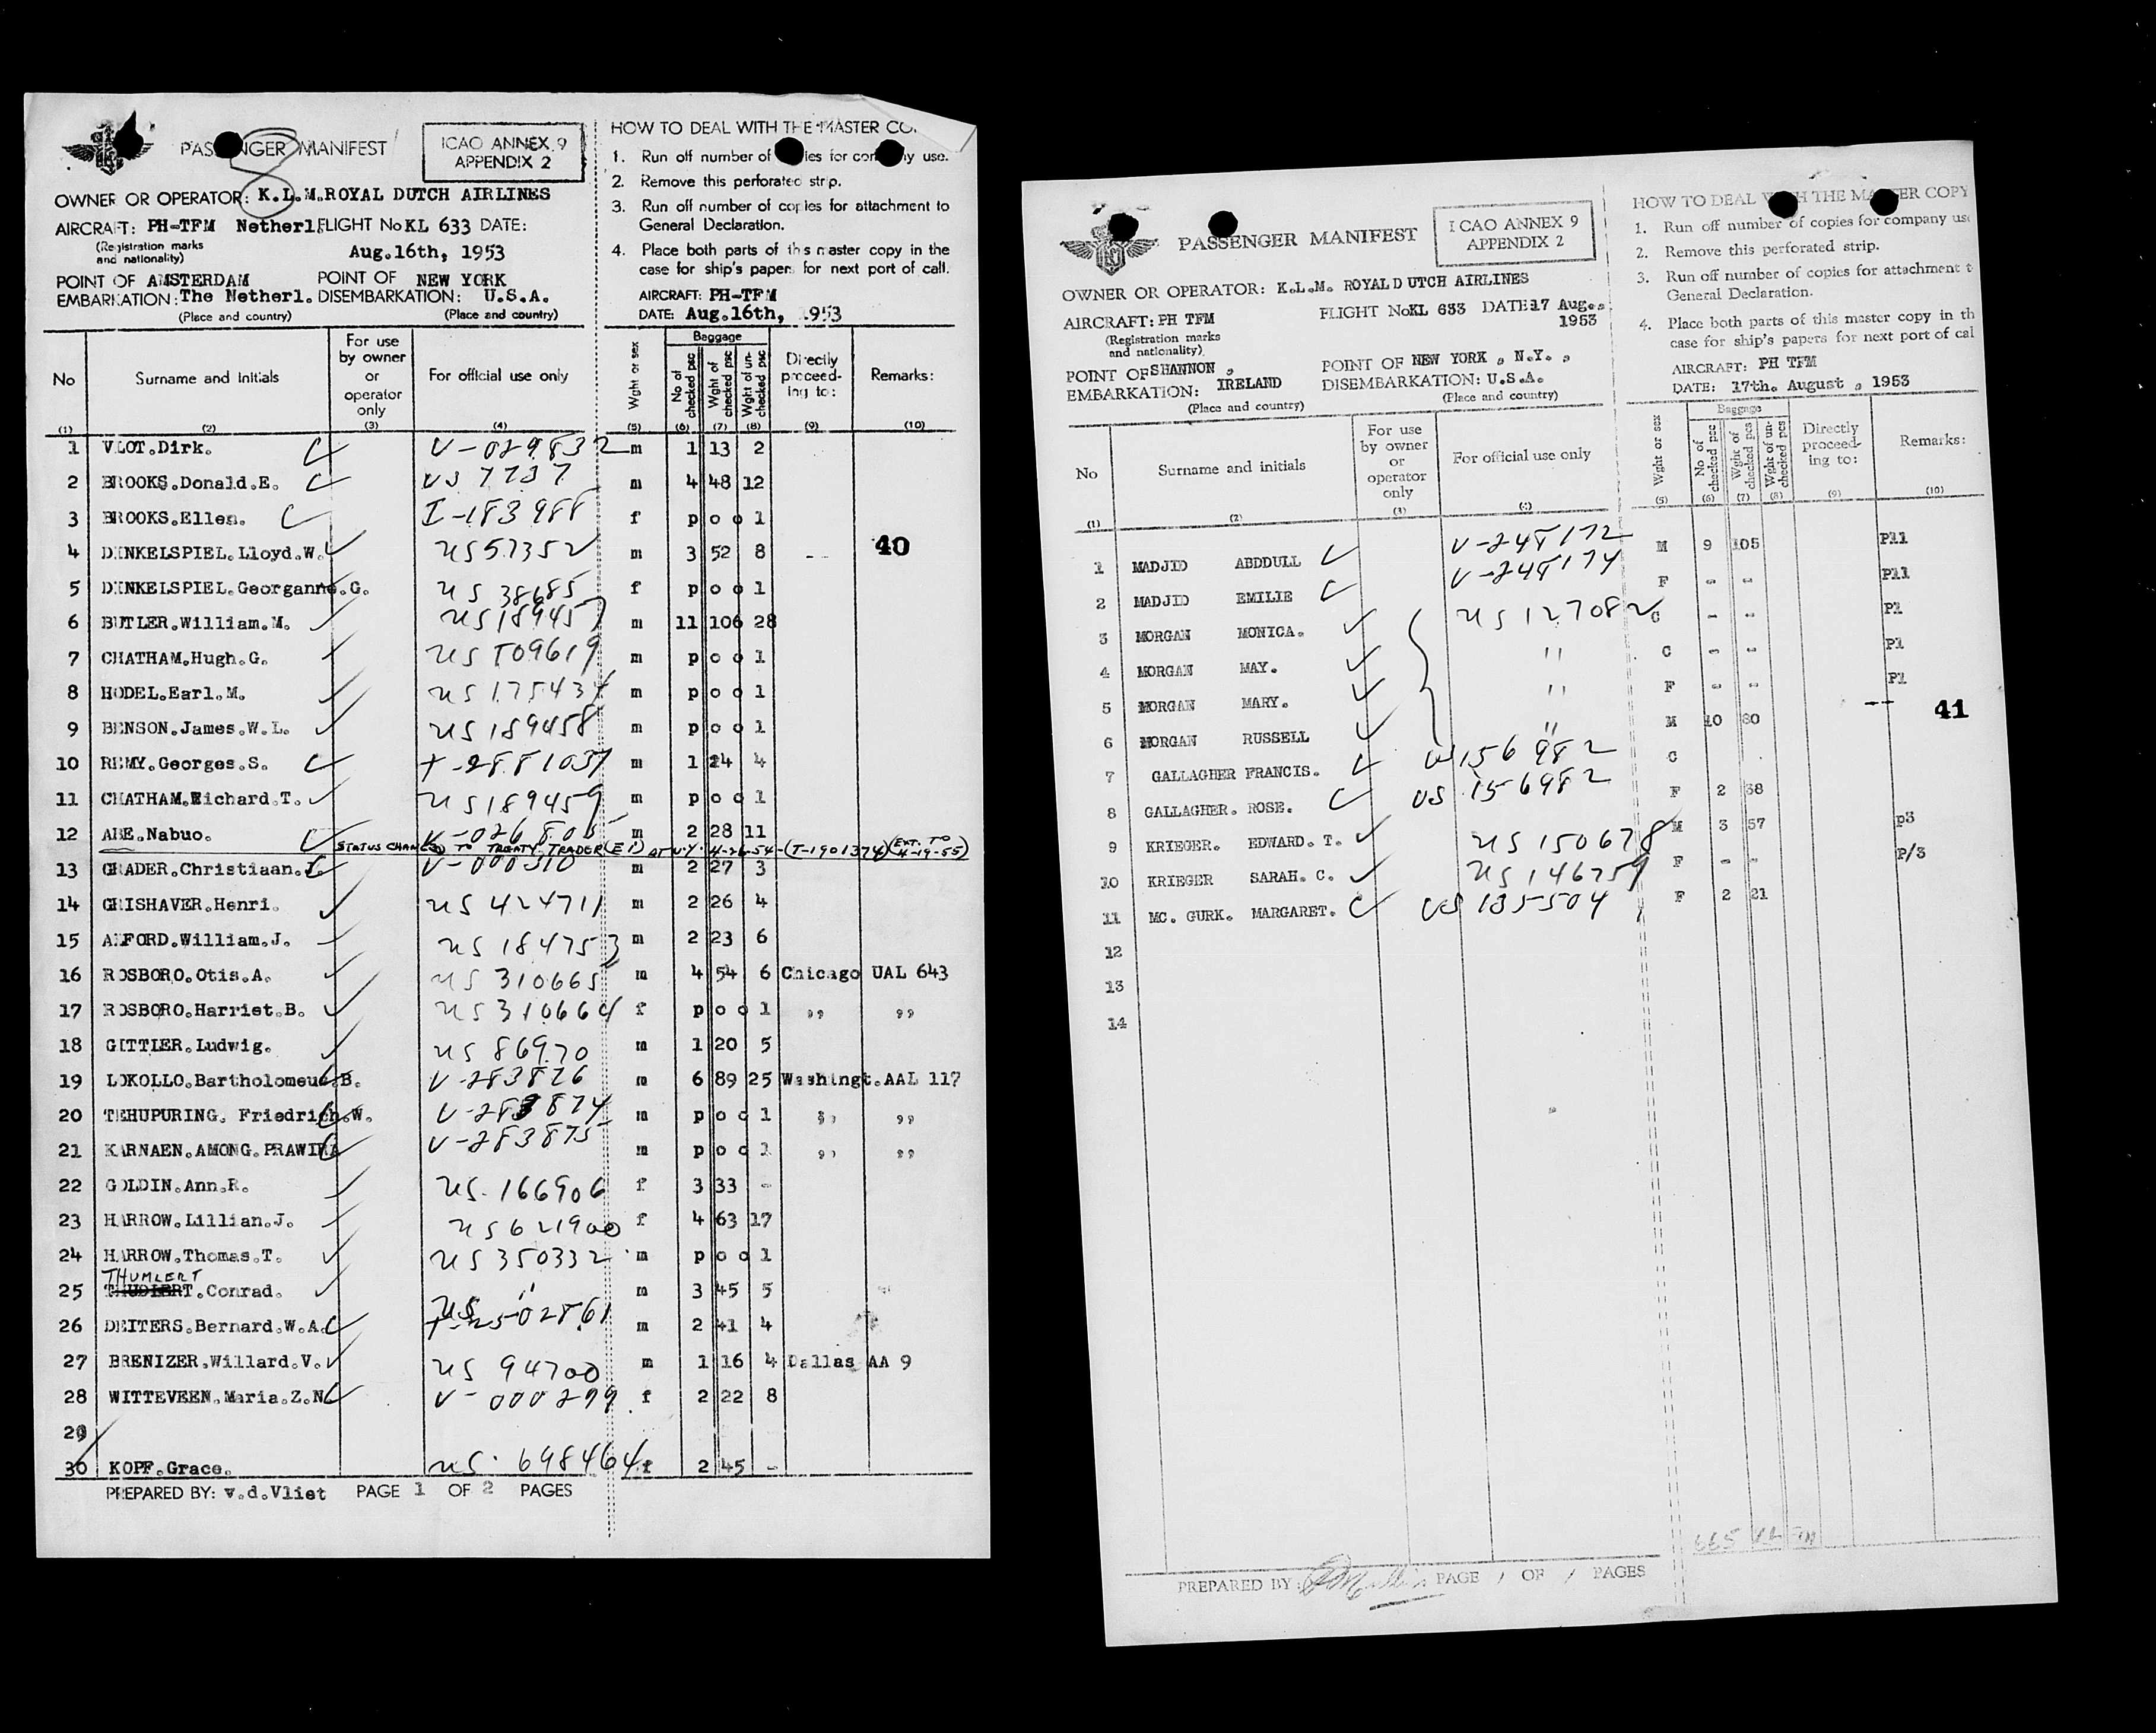 PASSENGER MANIFEST
ICAO ANNEX 9
APPENDIX 2
OWNER OR OPERATOR: K.L.M.ROYAL DUTCH AIRLINES
AIRCRAFT: PH-TFM Netherl. FLIGHT No KL 633 DATE:
(Registration marks and nationality) Aug.16th, 1953
POINT OF AMSTERDAM POINT OF NEW YORK
EMBARKATION: The Netherl. DISEMBARKATION: U.S.A.
(Place and country) (Place and country)
HOW TO DEAL WITH THE MASTER CO
1. Run off number of copies for company use.
2. Remove this perforated strip.
3. Run off number of copies for attachment to
General Declaration.
4. Place both parts of this master copy in the
case for ship's papers for next port of call.
AIRCRAFT: PH-TFM
DATE: Aug.16th, 1953
No Surname and Initials For use by owner or operator only For official use only Wght or sex Baggage No of checked psc Wght of checked psc Wght of un-checked psc Directly proceed-ing to: Remarks:
(1) (2) (3) (4) (5) (6) (7) (8) (9) (10)
1 VLOT.Dirk. V-029832 m 1 13 2
2 BROOKS.Donald.E. US 7737 m 4 48 12
3 BROOKS.Ellen. I-183988 f p o o 1
4 DINKELSPIEL.Lloyd.W. US 57352 m 3 52 8 -- 40
5 DINKELSPIEL.Georganne.G. US 38685 f p o o 1
6 BUTLER.William.M. US 189457 m 11 106 28
7 CHATHAM.Hugh.G. US 109619 m p o o 1
8 HODEL.Earl.M. US 175434 m p o o 1
9 BENSON.James.W.L. US 189458 m p o o 1
10 REMY.Georges.S. m 1 24 4
11 CHATHAM.Richard.T. US 189459 m p o o 1
12 ABE.Nabuo. V-026805 m 2 28 11
STATUS CHANGED TO TREATY TRADER (E1) AT N.Y. 4-26-54-(T-1901374) (EXT. TO 4-19-55)
13 GRADER.Christiaan.J. V-000310 m 2 27 3
14 GRISHAVER.Henri. US 424711 m 2 26 4
15 AXFORD.William.J. US 184753 m 2 23 6
16 ROSBORO.Otis.A. US 310665 m 4 54 6 Chicago UAL 643
17 ROSBORO.Harriet.B. US 310664 f p o o 1 ,, ,,
18 GITTLER.Ludwig. US 86970 m 1 20 5
19 LOKOLLO.Bartholomeus.B. V-283826 m 6 89 25 Washingt.AAL 117
20 TEHUPURING. Friedrich.W. V-283874 m p o o 1 ,, ,,
21 KARNAEN.AMONG.PRAWIRA V-283875 m p o o 1 ,, ,,
22 GOLDIN.Ann.R. US. 166906 f 3 33 -
23 HARROW.Lillian.J. US 621900 f 4 63 17
24 HARROW.Thomas.T. US 350332 m p o o 1
THUMLERT
25 .Conrad. " m 3 45 5
26 DEITERS.Bernard.W.A. m 2 41 4
27 BRENIZER.Willard.V. US 94700 m 1 16 4 Dallas AA 9
28 WITTEVEEN.Maria.Z.N. V-000299 f 2 22 8
29
30 KOPF.Grace. US. 698464 f 2 45 -
PREPARED BY: v.d.Vliet PAGE 1 OF 2 PAGES
PASSENGER MANIFEST
ICAO ANNEX 9
APPENDIX 2
OWNER OR OPERATOR: K.L.M. ROYAL DUTCH AIRLINES
AIRCRAFT: PH TFM FLIGHT No KL 633 DATE 17 Aug.,
1953
(Registration marks and nationality)
POINT OF SHANNON, POINT OF NEW YORK, N.Y.,
EMBARKATION: IRELAND DISEMBARKATION: U.S.A.
(Place and country) (Place and country)
HOW TO DEAL WITH THE MASTER COPY
1. Run off number of copies for company us
2. Remove this perforated strip.
3. Run off number of copies for attachment t
General Declaration.
4. Place both parts of this master copy in th
case for ship's papers for next port of cal
AIRCRAFT: PH TFM
DATE: 17th. August, 1953
No Surname and initials For use by owner or operator only For official use only Wght or sex Baggage No of checked psc Wght of checked pcs Wght of un-checked pcs Directly proceed-ing to: Remarks:
(1) (2) (3) (4) (5) (6) (7) (8) (9) (10)
1 MADJID ABDDULL V-248172 M 9 105 P11
2 MADJID EMILIE V-248174 F - - P11
3 MORGAN MONICA. US 127082 C - - P1
4 MORGAN MAY. " C - - P1
5 MORGAN MARY. " F - - P1
6 MORGAN RUSSELL " M 10 80 -- 41
7 GALLAGHER FRANCIS. US 156982 C
8 GALLAGHER. ROSE. US 156982 F 2 38
9 KRIEGER. EDWARD. T. US 150678 M 3 57 p3
10 KRIEGER SARAH. C. US 146759 F - - P/3
11 MC. GURK. MARGARET. US 135504 F 2 21
12
13
14
PREPARED BY: PAGE 1 OF 1 PAGES